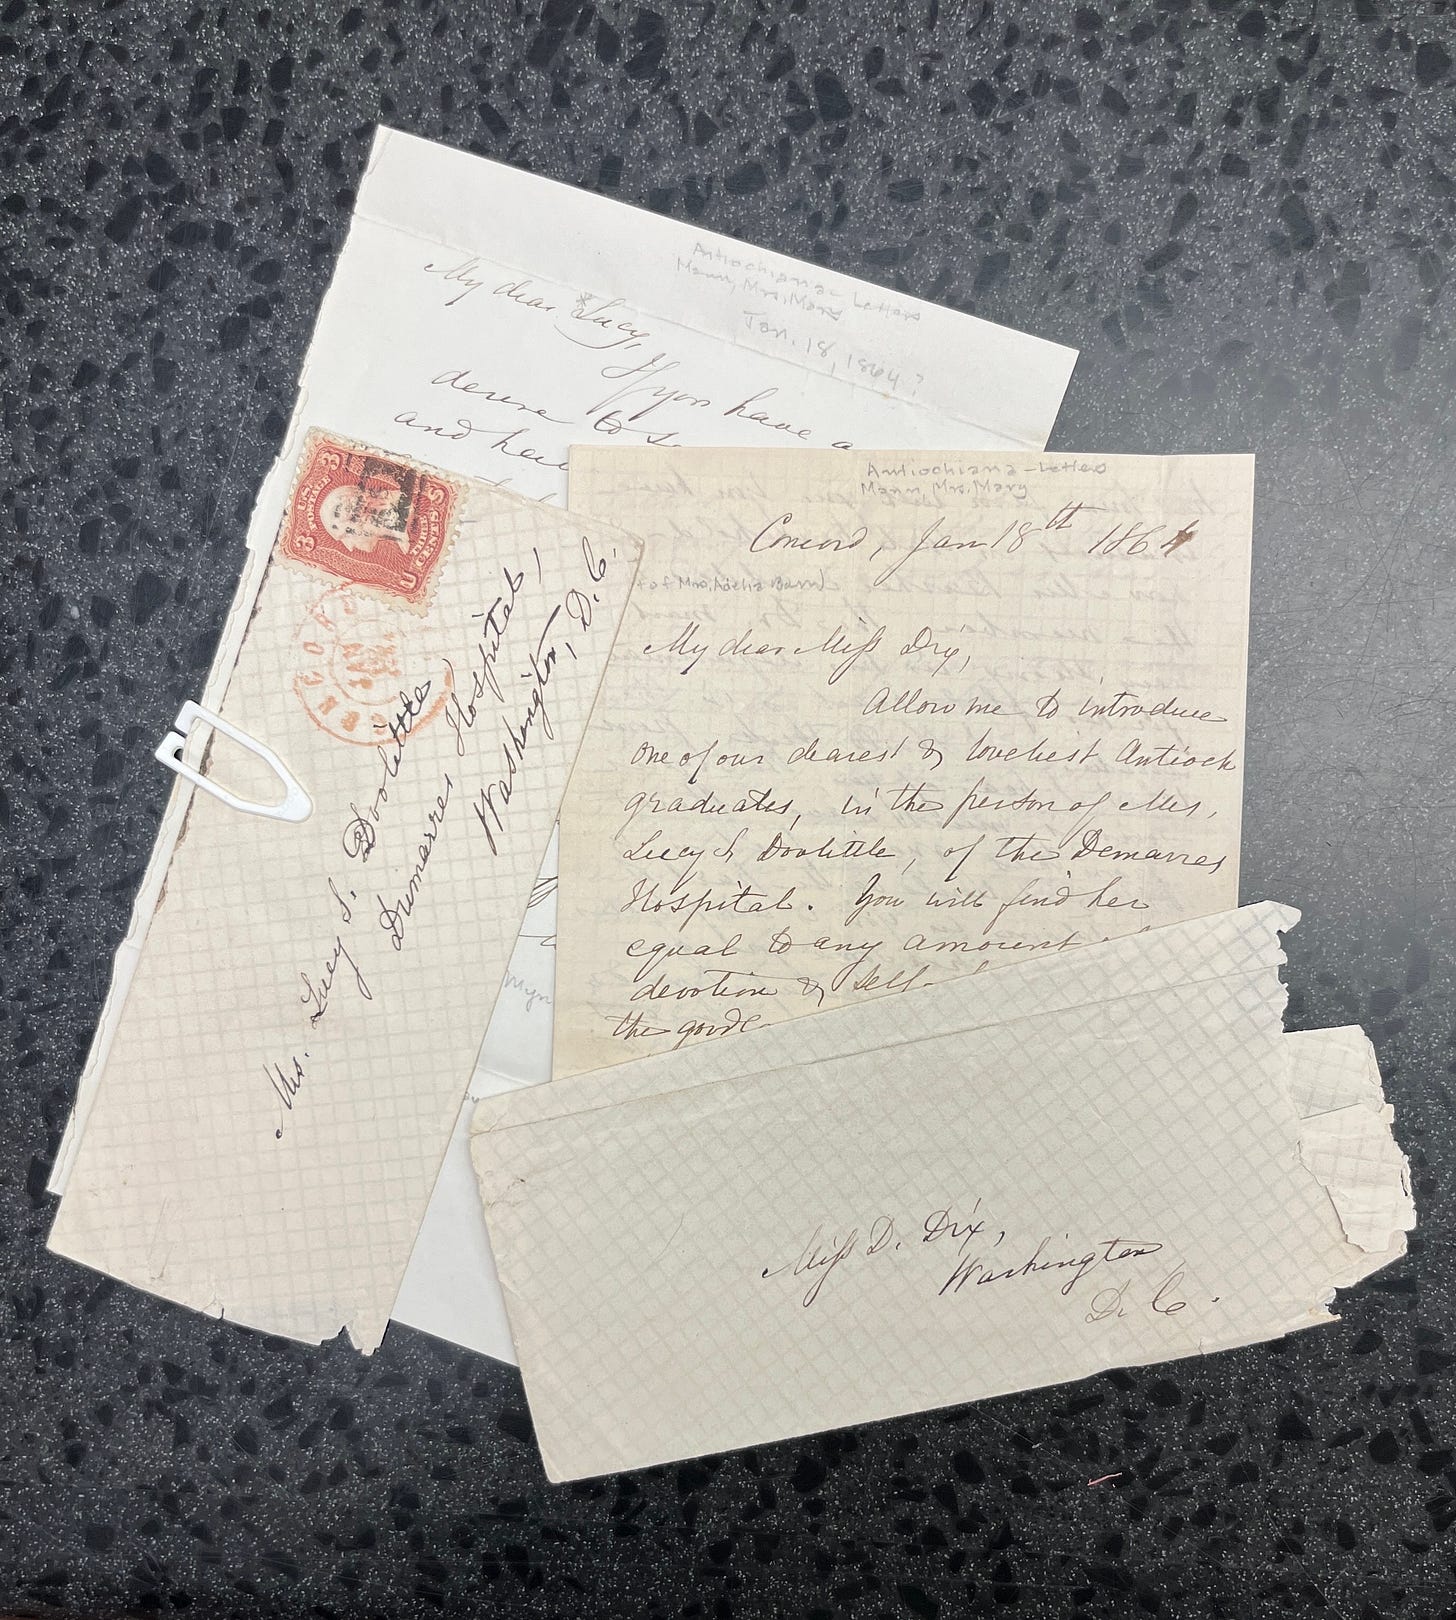 Antiochiana - Letters
Mann, Mrs. Mary
Jan. 18, 1864?
My dear *Lucy,
If you have a
desire to
and
U.S. POSTAGE
3 3
CONCORD
JAN
Mrs. Lucy S. Doolittle
Dumarres Hospital,
Washington, D.C.
Antiochiana - Letters
Mann, Mrs. Mary
Concord, Jan 18th 1864
of Mrs. Adelia
My dear Miss Dix,
Allow me to introduce
one of our dearest & loveliest Antioch
graduates, in the person of Mrs.
Lucy S Doolittle, of the Demarres
Hospital. You will find her
equal to any amount
devotion & self-
the good
Miss D. Dix,
Washington
D. C.